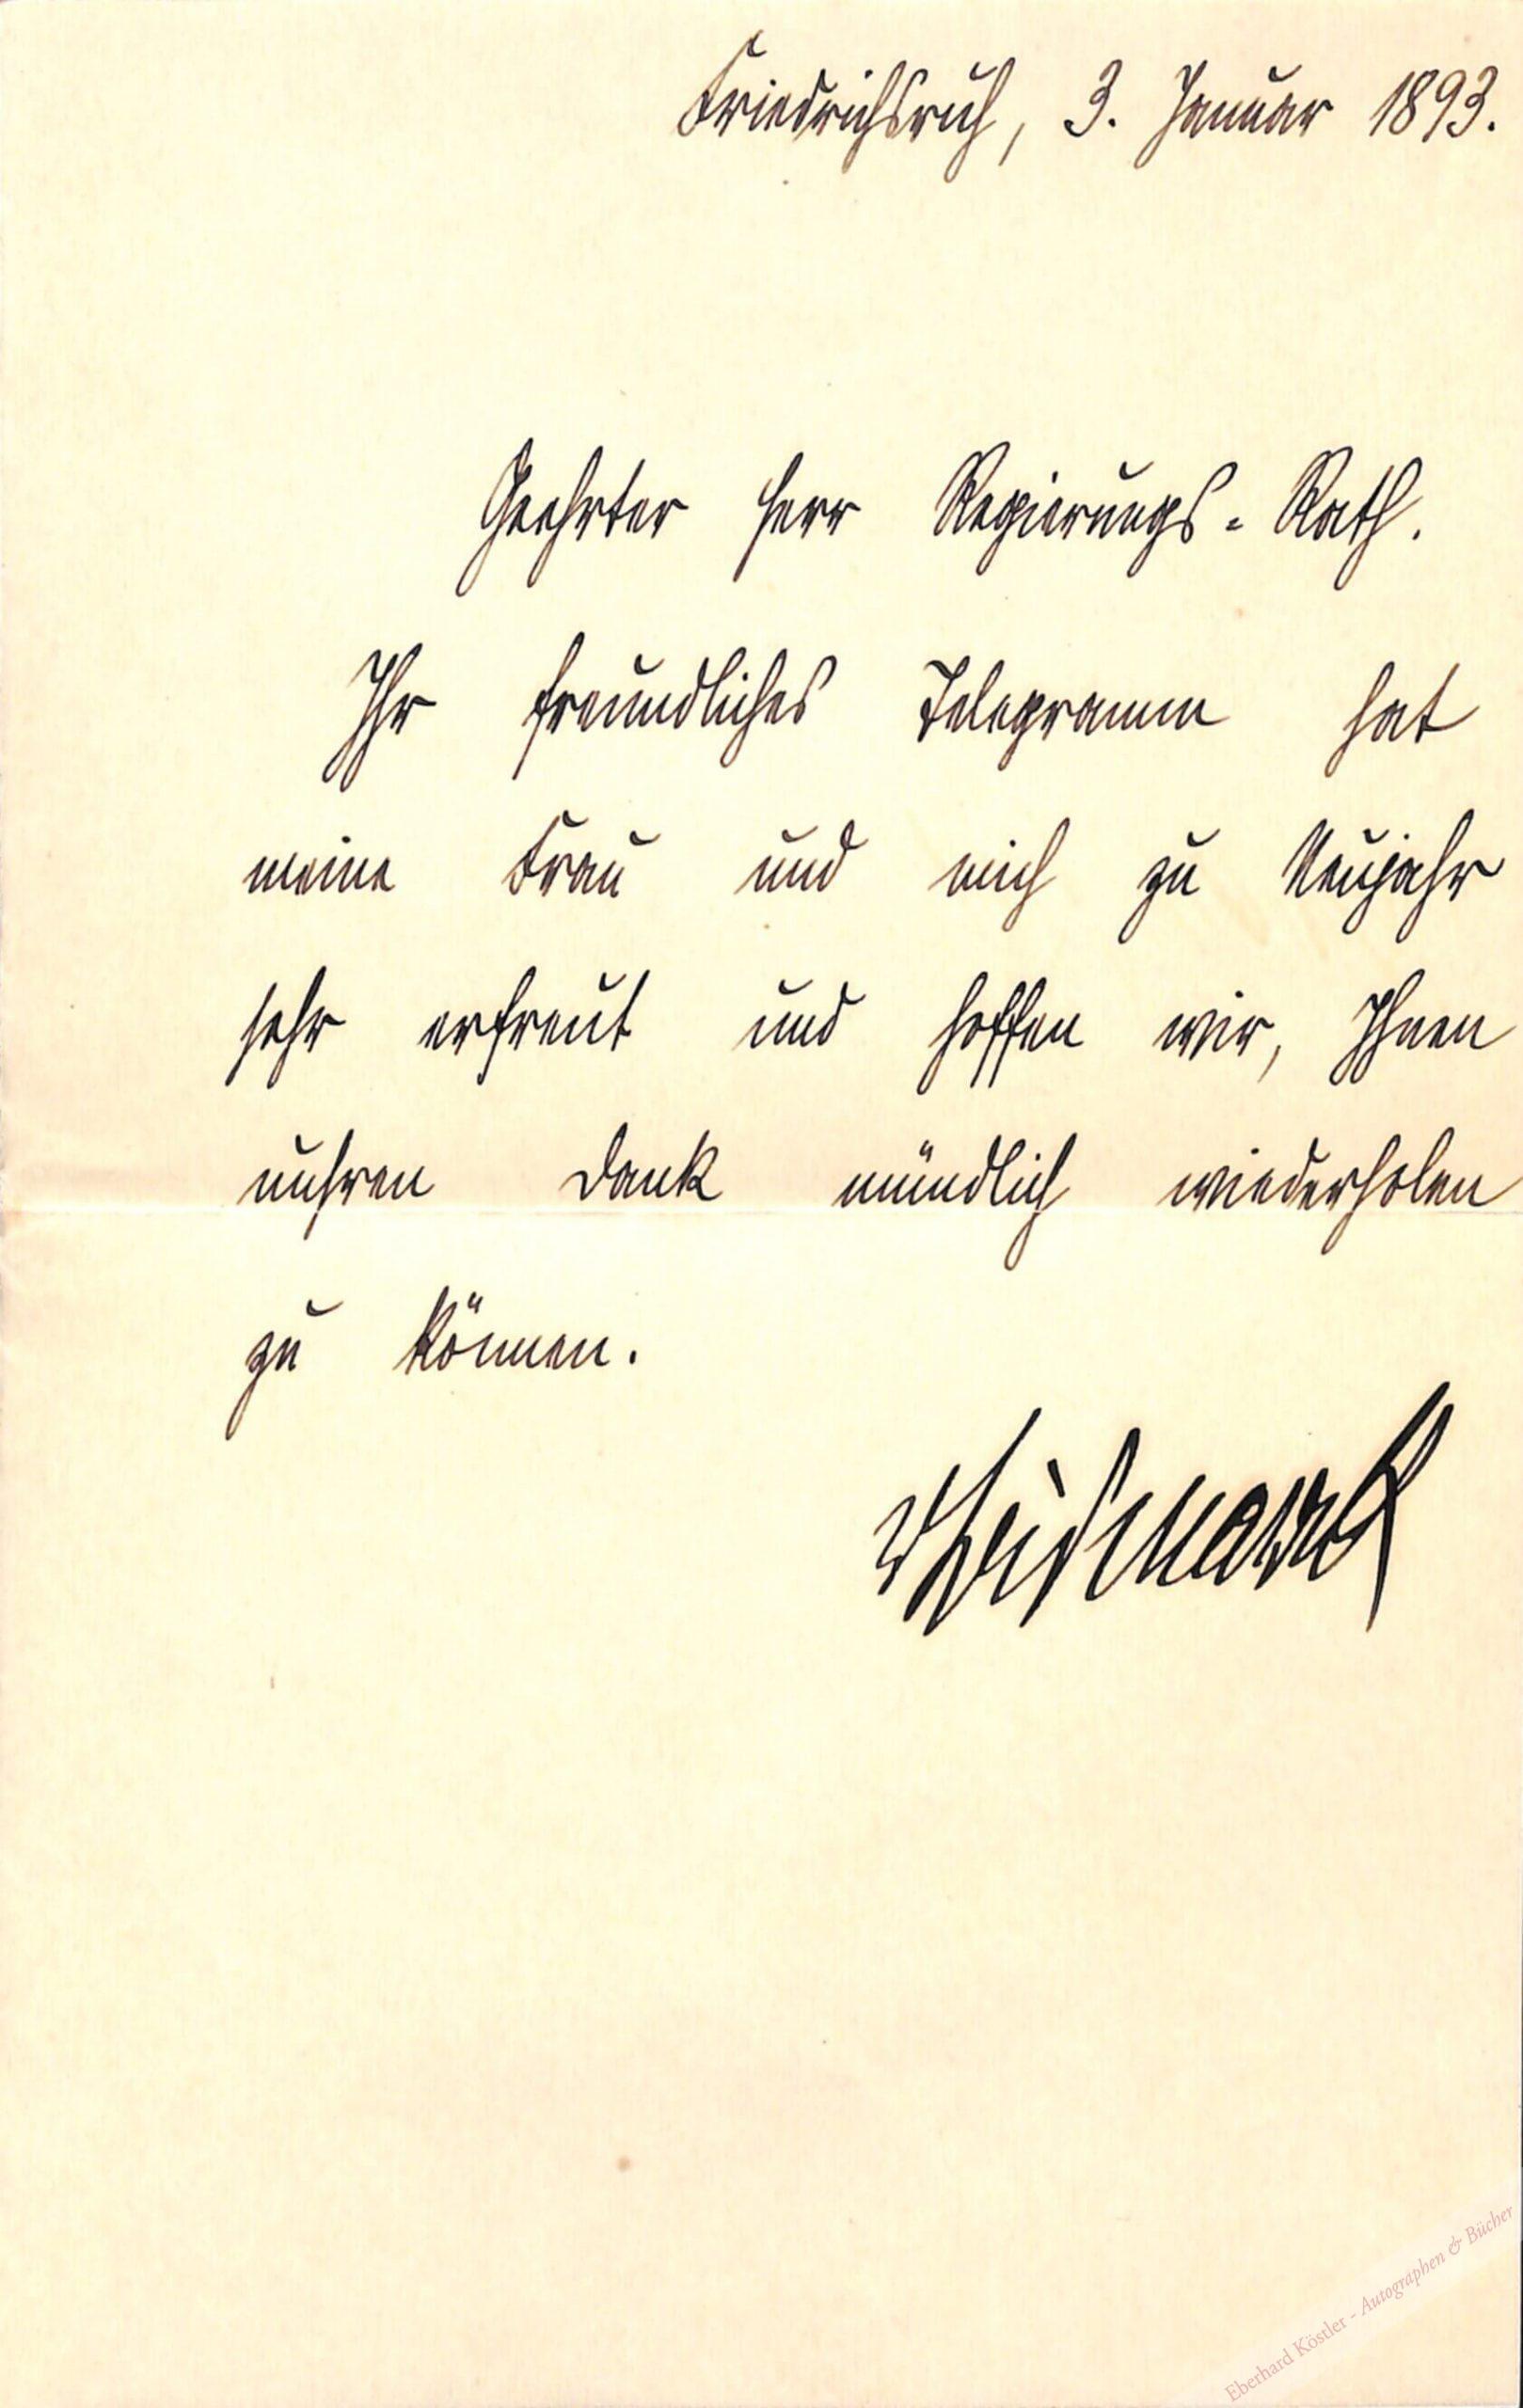 Friedrichsruh, 3. Januar 1893.
Geehrter Herr Regierungs-Rath.
Ihr freundliches Telegramm hat
meine Frau und mich zu Neujahr
sehr erfreut und hoffen wir, Ihnen
unsren Dank mündlich wiederholen
zu können.
vBismarck
Eberhard Köstler - Autographen & Bücher